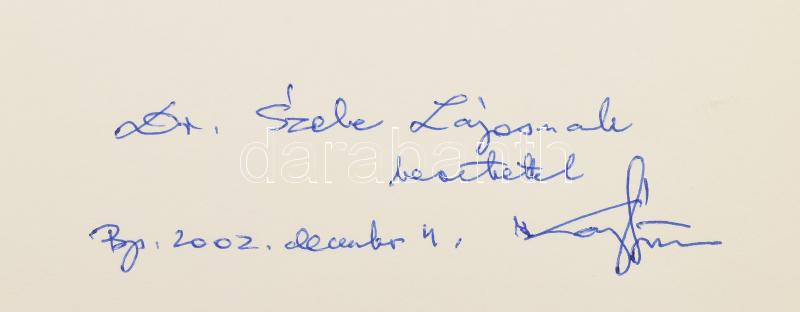 Dr. Szebe Lajosnak
darabanth
szeretettel
Bp. 2002. december 4.